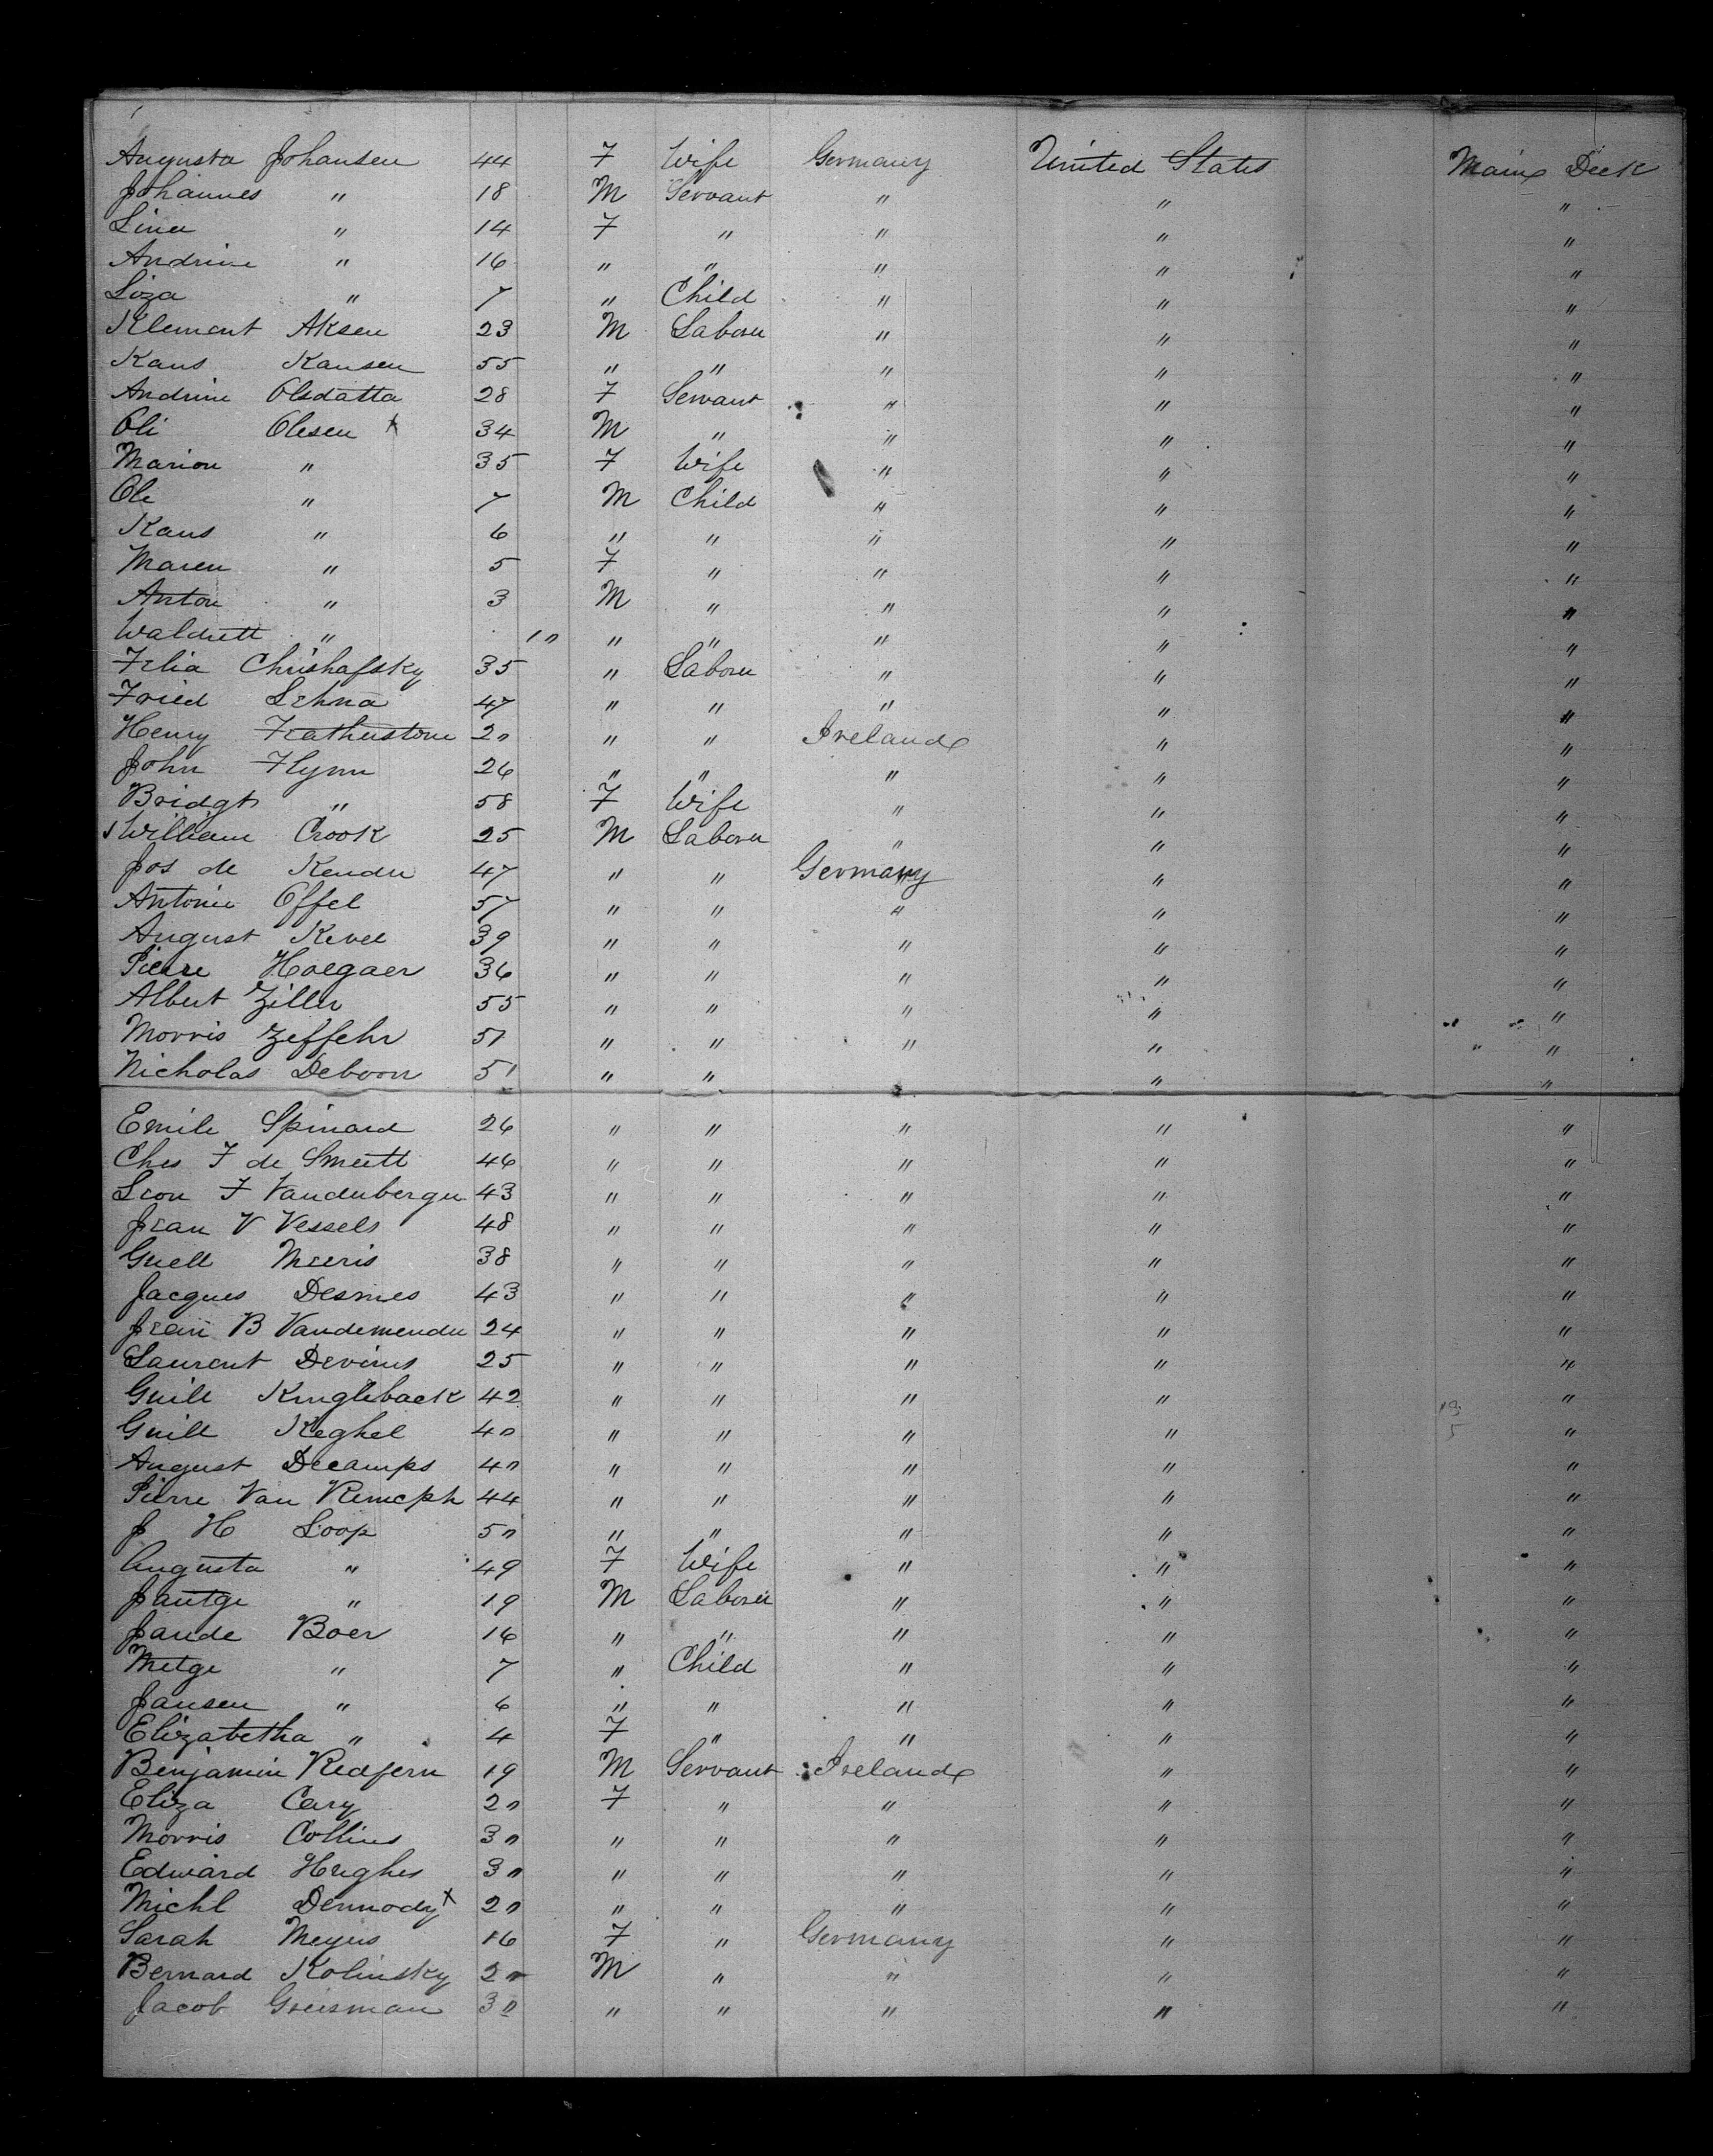 Augusta Johansen 44 F Wife Germany United States Main Deck
Johannes " 18 M Servant " " "
Lina " 14 F " " " "
Andrine " 16 " " " " "
Loza " 7 " Child " " "
Klement Aksen 23 M Laborer " " "
Kans Kansen 55 " " " " "
Andrine Olsdatta 28 F Servant " " "
Oli Olesen x 34 M " " " "
Marion " 35 F Wife " " "
Ole " 7 M Child " " "
Kans " 6 " " " " "
Maren " 5 F " " " "
Anton " 3 M " " " "
Waldutt " 10 " " " " "
Felia Chrishafsky 35 " Laborer " " "
Fried Lehna 47 " " " " "
Henry Featherstone 20 " " Ireland " "
John Flynn 26 " " " " "
Bridgt " 58 F Wife " " "
William Crook 25 M Laborer " " "
Jos de Kender 47 " " Germany " "
Antonie Offel 57 " " " " "
August Kevel 39 " " " " "
Pierre Holgaer 36 " " " " "
Albert Ziller 55 " " " " "
Morris Zeffehr 51 " " " " "
Nicholas Deboon 51 " " " " "
Emile Spinard 26 " " " " "
Ches F de Smett 46 " " " " "
Leon F Vandenberger 43 " " " " "
Jean V Vessels 48 " " " " "
Guell Meeris 38 " " " " "
Jacques Desmes 43 " " " " "
Jean B Vandemender 24 " " " " "
Laurent Devirus 25 " " " " "
Guill Kingleback 42 " " " " "
Guill Keghel 40 " " " " "
August Decamps 40 " " " " "
Pierre Van Remcph 44 " " " " "
J H Loop 50 " " " " "
Augusta " 49 F Wife " " "
Jantge " 19 M Laborer " " "
Jande Boer 16 " " " " "
Metge " 7 " Child " " "
Jansen " 6 " " " " "
Elizabetha " 4 F " " " "
Benjamin Redfern 19 M Servant Ireland " "
Eliza Cary 20 F " " " "
Morris Collins 30 " " " " "
Edward Hughes 30 " " " " "
Michl Dermody x 20 " " " " "
Sarah Meyus 16 F " Germany " "
Bernard Kolinsky 20 M " " " "
Jacob Greisman 30 " " " " "